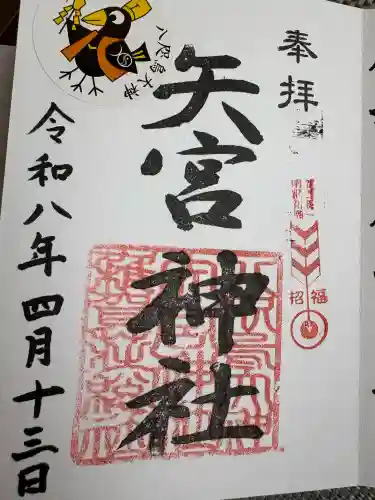 奉拝
招福
矢宮神社
八咫烏大神
令和八年四月十三日